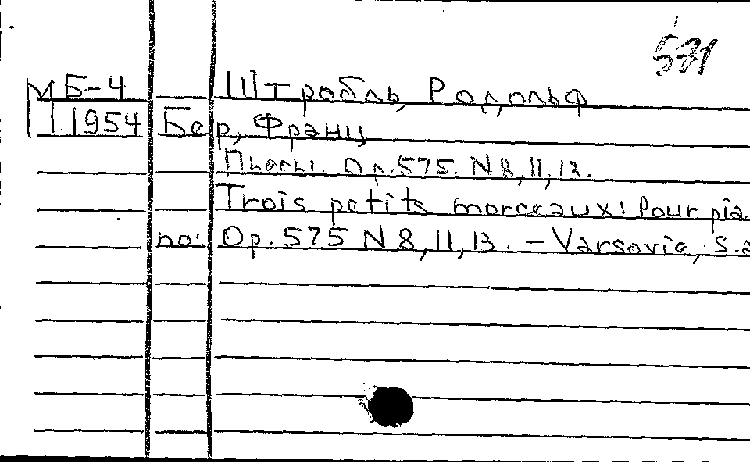 531
М Б-4 Штрабль, Родольф
11954 Бер, Франц
Пьесы. Op. 575. N 8, 11, 13.
Trois petits morceaux: Pour pia
no: Op. 575 N 8, 11, 13. – Varsovie, s.a